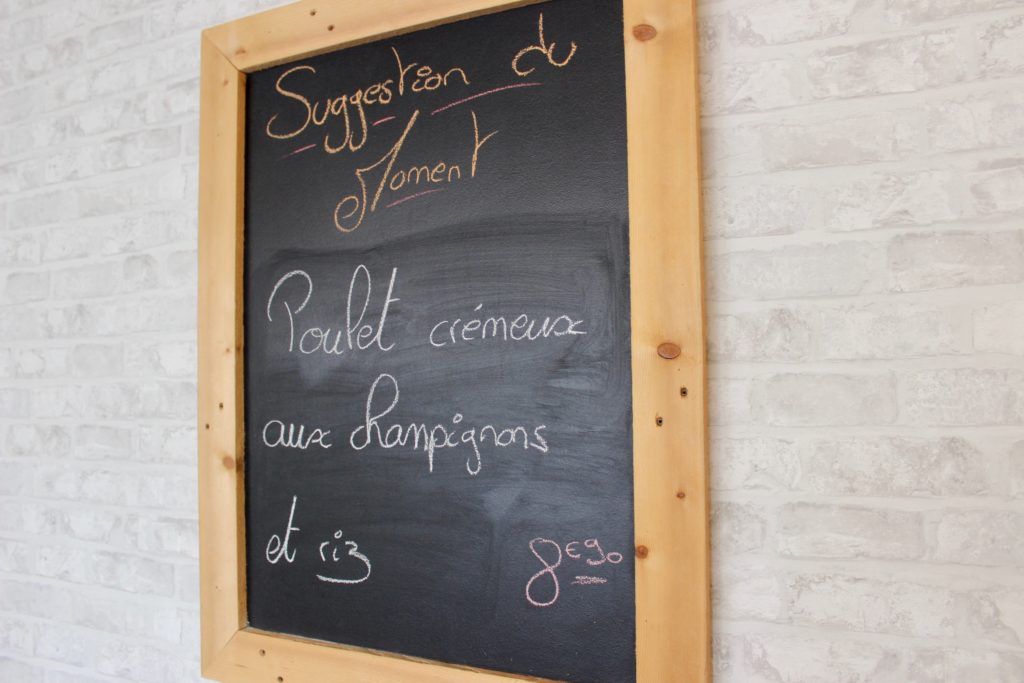 Suggestion du
Moment
Poulet crémeux
aux champignons
et riz 8€90